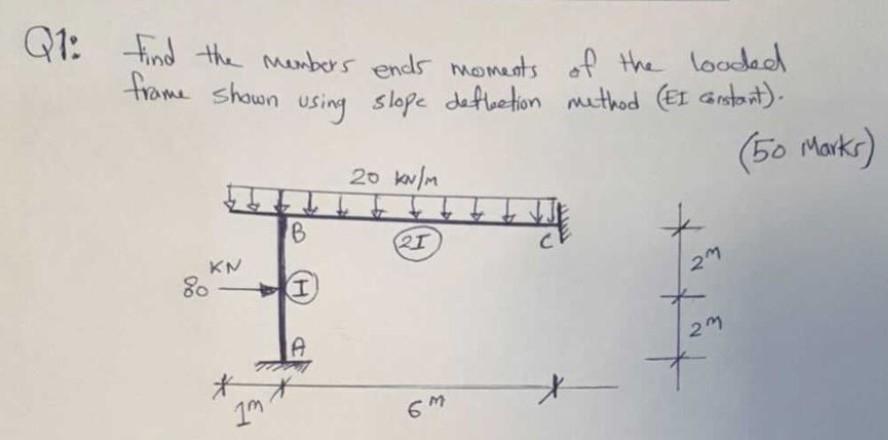 Q1: Find the members ends moments of the loaded
frame shown using slope deflection method (EI constant).
(50 Marks)
20 KN/M
B
2I
C
KN
80
I
A
2m
2m
1m
6m